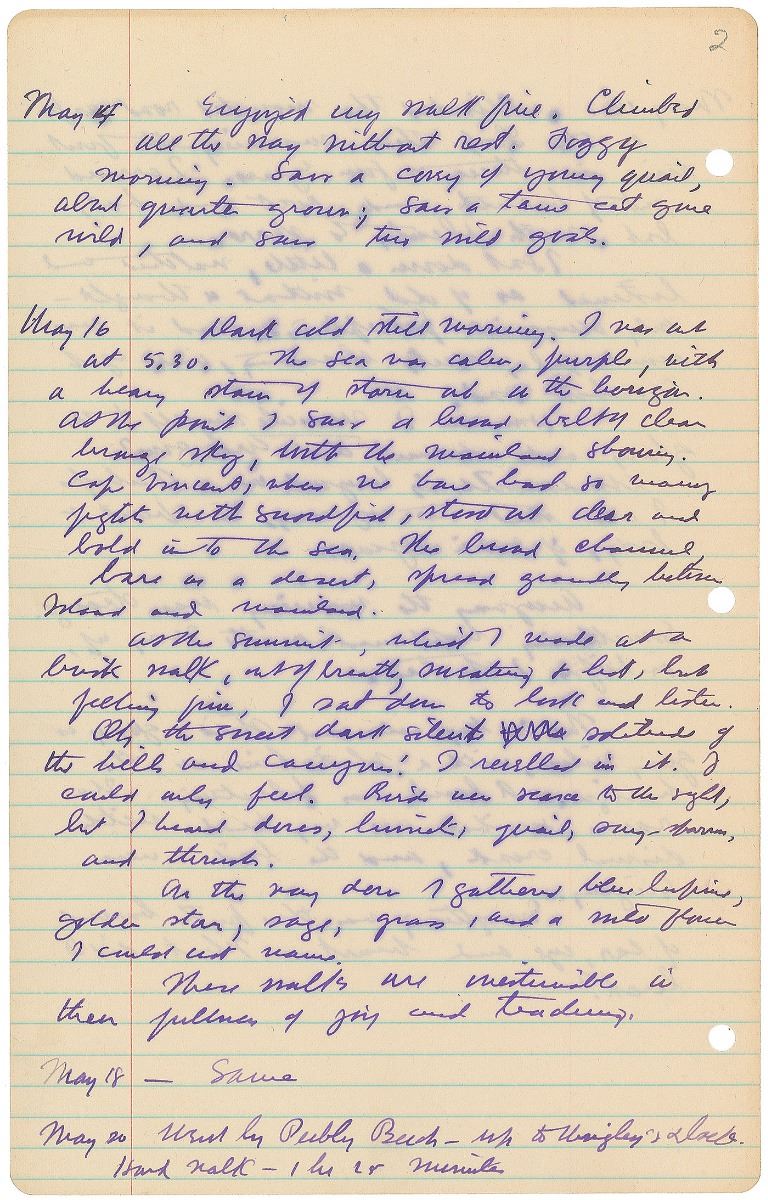 2
May 14 Enjoyed my walk fine. Climbed
all the way without rest. Foggy
morning. Saw a covey of young quail,
about quarter grown; saw a tame cat gone
wild, and saw two wild goats.
May 16 Dark cold still morning. I was out
at 5.30. The sea was calm, purple, with
a heavy storm out on the horizon.
At the point I saw a broad belt of clear
bronze sky, with the mainland showing.
Cape Vincent, where we have had so many
fights with swordfish, stood out clear and
bold into the sea. The broad channel,
bare as a desert, spread grandly between
Island and mainland.
At the summit, which I made at a
brisk walk, out of breath, sweating & hot, but
feeling fine, I sat down to look and listen.
Oh, the sweet dark silent solitude of
the hills and canyons! I revelled in it. I
could only feel. Birds were scarce to the sight,
but I heard doves, linnets, quail, song-sparrow,
and thrush.
On the way down I gathered blue lupine,
golden star, sage, grass, and a wild flower
I could not name.
These walks are inestimable in
their fullness of joy and teaching.
May 18 — Same
May 20 Went by Pebbly Beach — up to Wrigley's & back.
Hard walk — 1 hr 25 minutes